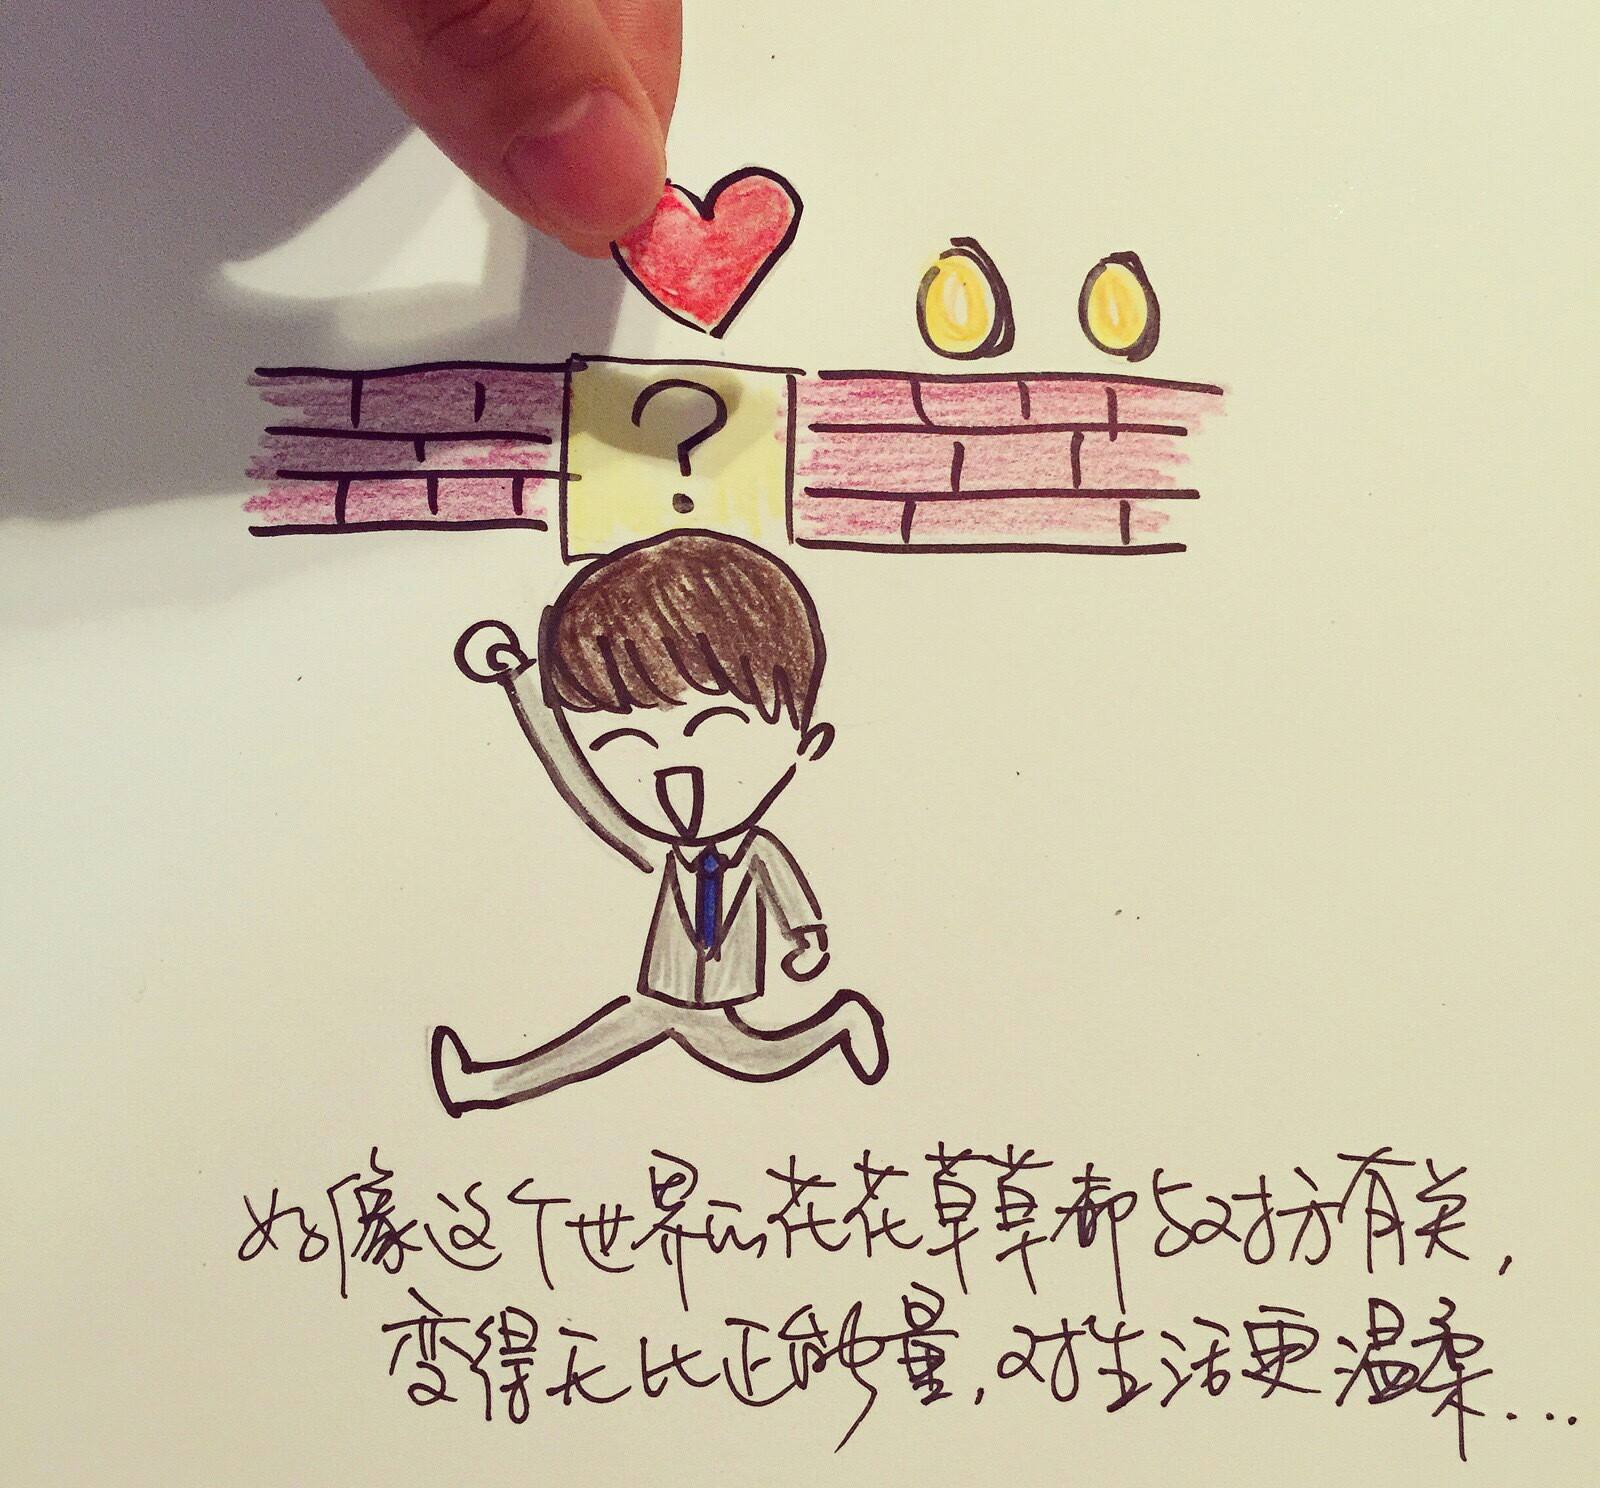 ?
好像这个世界的花花草草都与对方有关,
变得无比正能量,对生活更温柔...